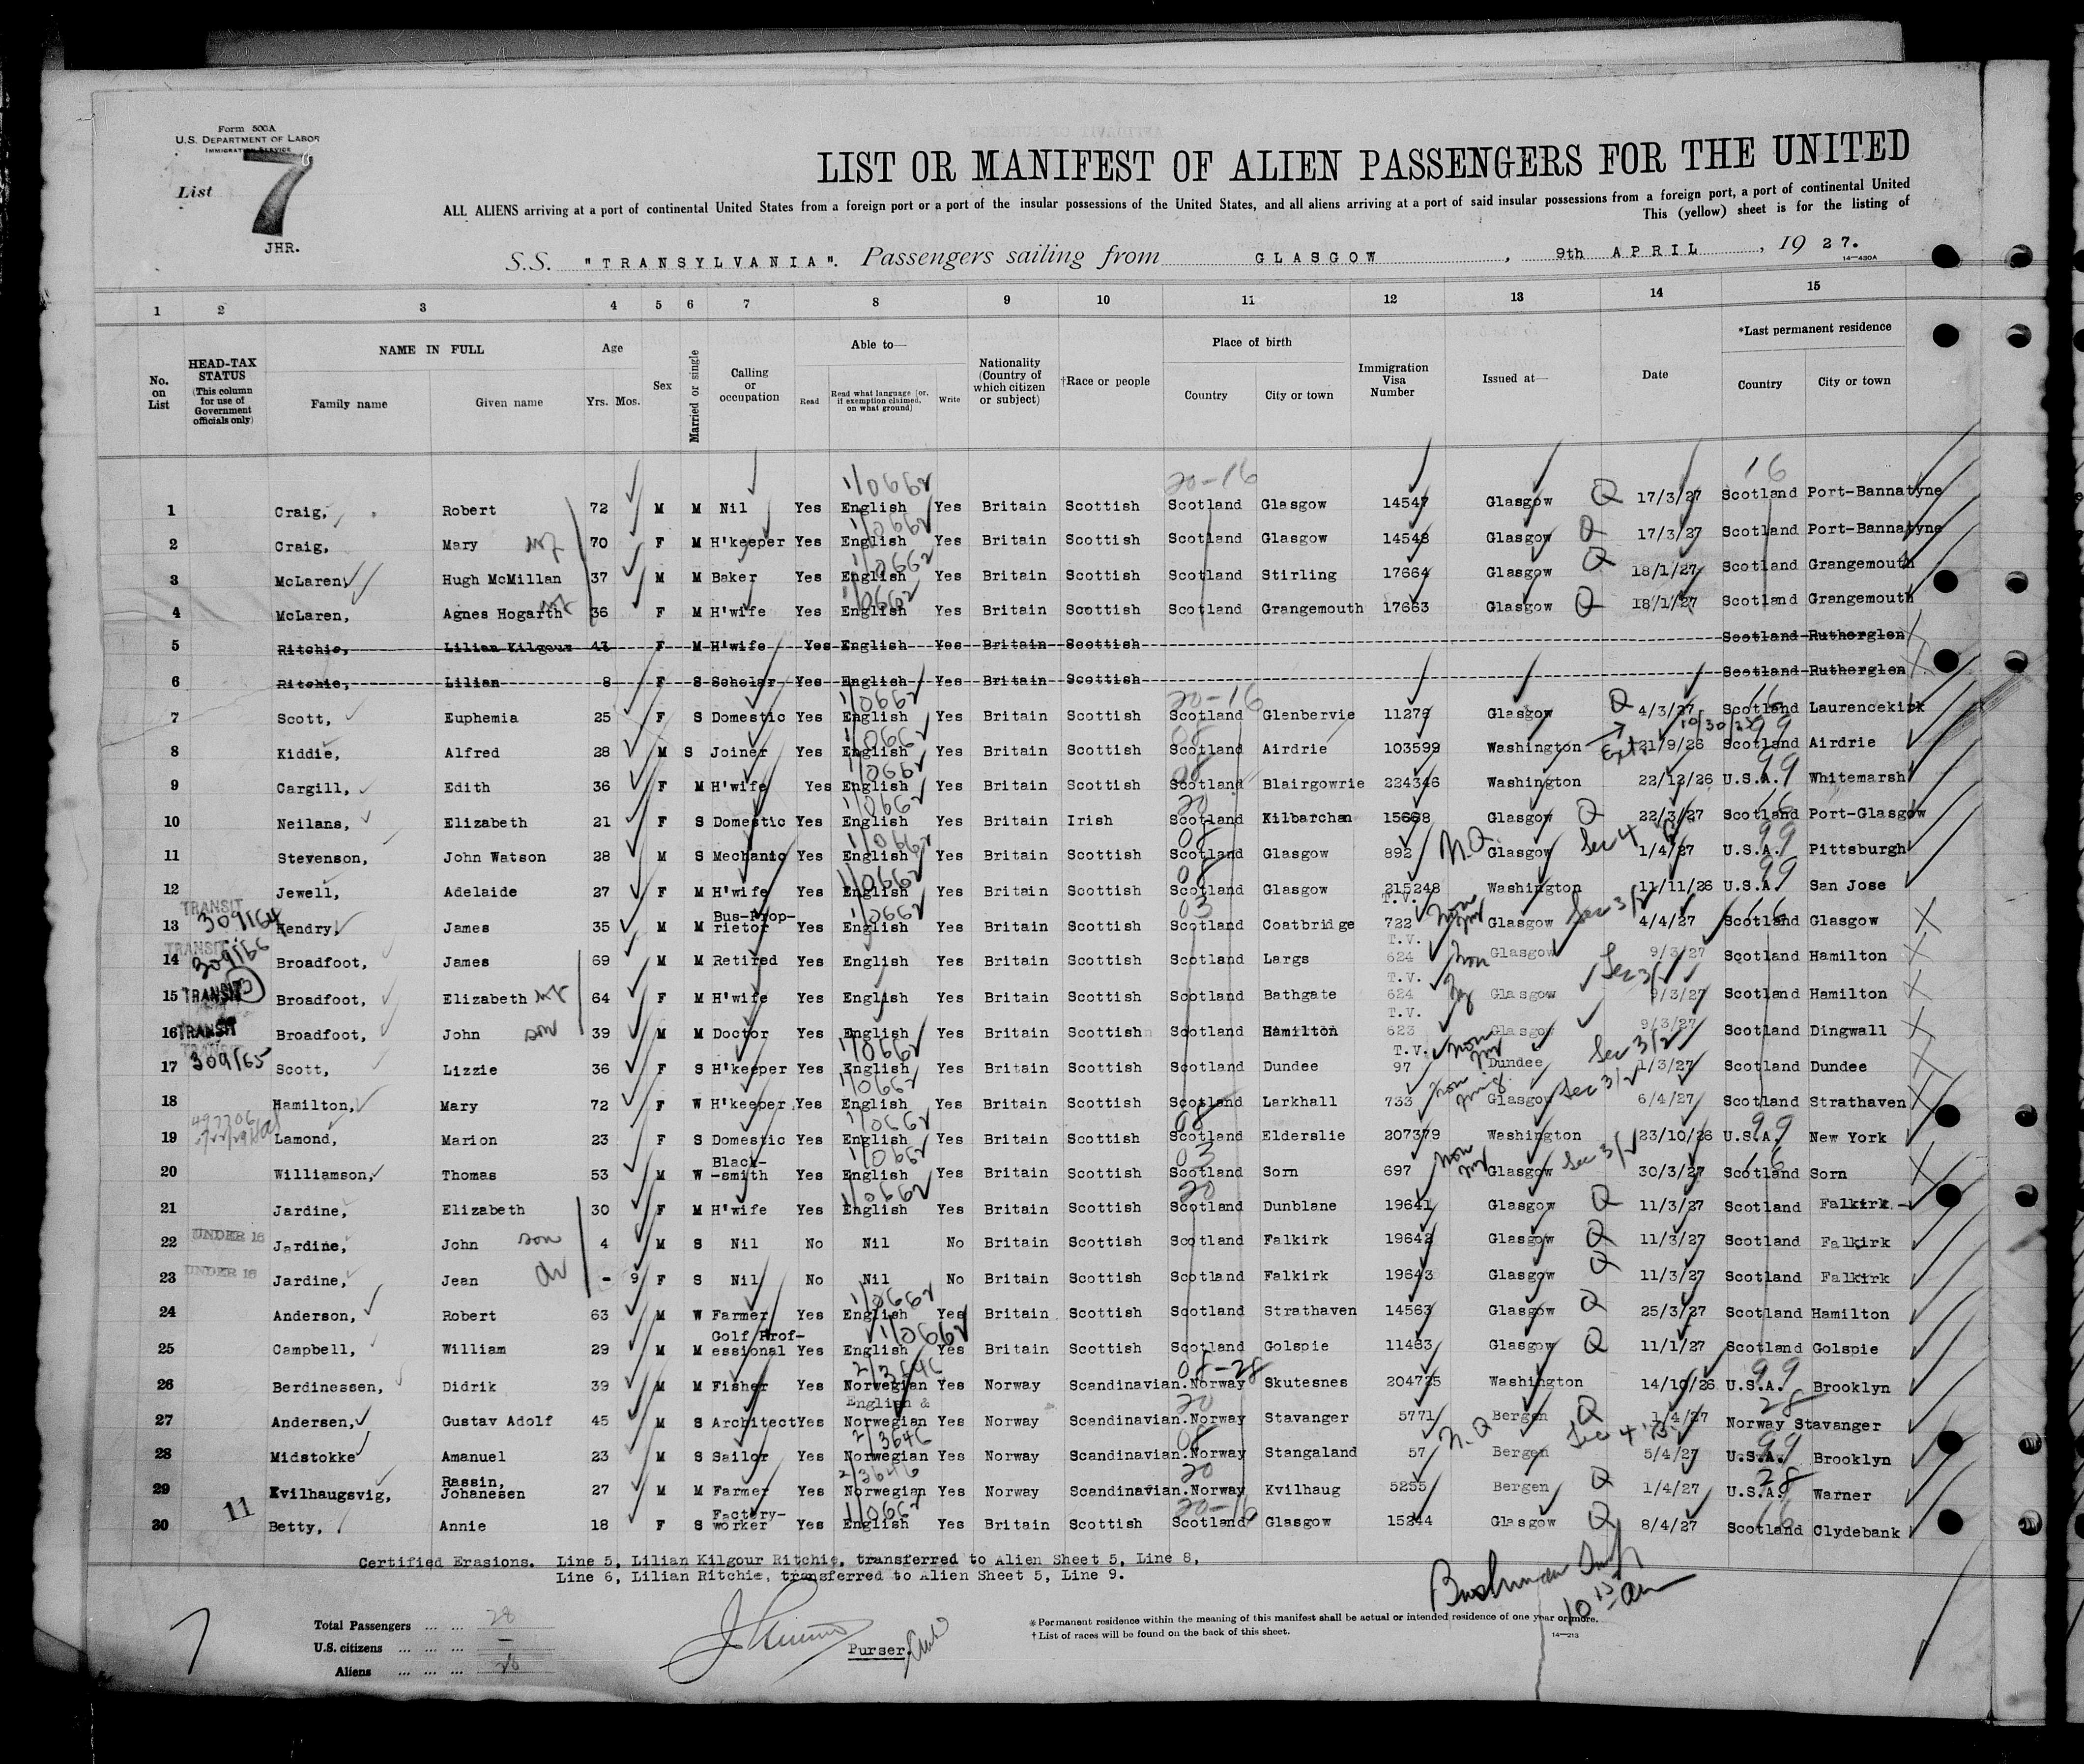 Form 500A
U.S. DEPARTMENT OF LABOR
IMMIGRATION SERVICE
List 7
JHR.
LIST OR MANIFEST OF ALIEN PASSENGERS FOR THE UNITED
ALL ALIENS arriving at a port of continental United States from a foreign port or a port of the insular possessions of the United States, and all aliens arriving at a port of said insular possessions from a foreign port, a port of continental United
This (yellow) sheet is for the listing of
S.S. "TRANSYLVANIA". Passengers sailing from GLASGOW, 9th APRIL, 19 27.
14—430A
1 2 3 4 5 6 7 8 9 10 11 12 13 14 15
No. on List
HEAD-TAX STATUS (This column for use of Government officials only)
NAME IN FULL
Family name Given name
Age
Yrs. Mos.
Sex
Married or single
Calling or occupation
Able to—
Read Read what language (or, if exemption claimed, on what ground) Write
Nationality (Country of which citizen or subject)
†Race or people
Place of birth
Country City or town
Immigration Visa Number
Issued at—
Date
*Last permanent residence
Country City or town
1/0662 20-16 16
1 Craig, Robert 72 M M Nil Yes English Yes Britain Scottish Scotland Glasgow 14547 Glasgow Q 17/3/27 Scotland Port-Bannatyne
1/0662
2 Craig, Mary wf 70 F M H'keeper Yes English Yes Britain Scottish Scotland Glasgow 14548 Glasgow Q 17/3/27 Scotland Port-Bannatyne
1/0662
3 McLaren, Hugh McMillan 37 M M Baker Yes English Yes Britain Scottish Scotland Stirling 17664 Glasgow Q 18/1/27 Scotland Grangemouth
1/0662
4 McLaren, Agnes Hogarth wf 36 F M H'wife Yes English Yes Britain Scottish Scotland Grangemouth 17663 Glasgow Q 18/1/27 Scotland Grangemouth
5 Ritchie, Lilian Kilgour 43 F M H'wife Yes English Yes Britain Scottish Scotland Rutherglen
6 Ritchie, Lilian 8 F S Scholar Yes English Yes Britain Scottish Scotland Rutherglen
1/0662 20-16
7 Scott, Euphemia 25 F S Domestic Yes English Yes Britain Scottish Scotland Glenbervie 11276 Glasgow Q 4/3/27 Scotland Laurencekirk
1/0662 08 99
8 Kiddie, Alfred 28 M S Joiner Yes English Yes Britain Scottish Scotland Airdrie 103599 Washington Ext. 21/9/26 Scotland Airdrie
1/0662 08 99
9 Cargill, Edith 36 F M H'wife Yes English Yes Britain Scottish Scotland Blairgowrie 224346 Washington 22/12/26 U.S.A. Whitemarsh
1/0662 20 16
10 Neilans, Elizabeth 21 F S Domestic Yes English Yes Britain Irish Scotland Kilbarchan 15668 Glasgow Q 22/3/27 Scotland Port-Glasgow
1/0662 08 99
11 Stevenson, John Watson 28 M S Mechanic Yes English Yes Britain Scottish Scotland Glasgow 892 N.Q Glasgow Sec 4 1/4/27 U.S.A. Pittsburgh
1/0662 08 99
12 Jewell, Adelaide 27 F M H'wife Yes English Yes Britain Scottish Scotland Glasgow 215248 Washington 11/11/26 U.S.A. San Jose
TRANSIT 309164 1/0662 03 T.V. 16
13 Hendry, James 35 M M Bus-Prop-rietor Yes English Yes Britain Scottish Scotland Coatbridge 722 Glasgow Sec 3/2 4/4/27 Scotland Glasgow
TRANSIT 309166 T.V.
14 Broadfoot, James 69 M M Retired Yes English Yes Britain Scottish Scotland Largs 624 Glasgow 9/3/27 Scotland Hamilton
T.V.
15 TRANSIT Broadfoot, Elizabeth wf 64 F M H'wife Yes English Yes Britain Scottish Scotland Bathgate 624 Glasgow Sec 3/ 9/3/27 Scotland Hamilton
T.V.
16 TRANSIT Broadfoot, John son 39 M M Doctor Yes English Yes Britain Scottish Scotland Hamilton 623 Glasgow 9/3/27 Scotland Dingwall
309165 1/0662 T.V.
17 Scott, Lizzie 36 F S H'keeper Yes English Yes Britain Scottish Scotland Dundee 97 Dundee Sec 3/2 1/3/27 Scotland Dundee
1/0662
18 Hamilton, Mary 72 F W H'keeper Yes English Yes Britain Scottish Scotland Larkhall 733 Glasgow Sec 3/2 6/4/27 Scotland Strathaven
1/0662 08 99
19 Lamond, Marion 23 F S Domestic Yes English Yes Britain Scottish Scotland Elderslie 207379 Washington 23/10/26 U.S.A. New York
1/0662 03 16
20 Williamson, Thomas 53 M W Black-smith Yes English Yes Britain Scottish Scotland Sorn 697 Glasgow Sec 3/2 30/3/27 Scotland Sorn
1/0662 20
21 Jardine, Elizabeth 30 F M H'wife Yes English Yes Britain Scottish Scotland Dunblane 19641 Glasgow Q 11/3/27 Scotland Falkirk
22 UNDER 16 Jardine, John son 4 M S Nil No Nil No Britain Scottish Scotland Falkirk 19642 Glasgow Q 11/3/27 Scotland Falkirk
23 UNDER 16 Jardine, Jean - 9 F S Nil No Nil No Britain Scottish Scotland Falkirk 19643 Glasgow Q 11/3/27 Scotland Falkirk
1/0662
24 Anderson, Robert 63 M W Farmer Yes English Yes Britain Scottish Scotland Strathaven 14563 Glasgow Q 25/3/27 Scotland Hamilton
1/0662
25 Campbell, William 29 M M Golf Prof-essional Yes English Yes Britain Scottish Scotland Golspie 11463 Glasgow Q 11/1/27 Scotland Golspie
2/3646 08-28 99
26 Berdinessen, Didrik 39 M M Fisher Yes Norwegian Yes Norway Scandinavian. Norway Skutesnes 204725 Washington 14/10/26 U.S.A. Brooklyn
20 28
27 Andersen, Gustav Adolf 45 M S Architect Yes English & Norwegian Yes Norway Scandinavian. Norway Stavanger 5771 Bergen Q 1/4/27 Norway Stavanger
2/3646 08 99
28 Midstokke Amanuel 23 M S Sailor Yes Norwegian Yes Norway Scandinavian. Norway Stangaland 57 N.Q Bergen Sec 4 5/4/27 U.S.A. Brooklyn
2/3646 20 28
29 Kvilhaugsvig, Rassin, Johanesen 27 M M Farmer Yes Norwegian Yes Norway Scandinavian. Norway Kvilhaug 5255 Bergen Q 1/4/27 U.S.A. Warner
11 1/0662 20-16 16
30 Betty, Annie 18 F S Factory-worker Yes English Yes Britain Scottish Scotland Glasgow 15244 Glasgow Q 8/4/27 Scotland Clydebank
Certified Erasions. Line 5, Lilian Kilgour Ritchie, transferred to Alien Sheet 5, Line 8,
Line 6, Lilian Ritchie, transferred to Alien Sheet 5, Line 9.
Total Passengers ... ... 28
U.S. citizens ... ... ... —
Aliens ... ... ... 28
Purser
*Permanent residence within the meaning of this manifest shall be actual or intended residence of one year or more.
†List of races will be found on the back of this sheet.
14—213